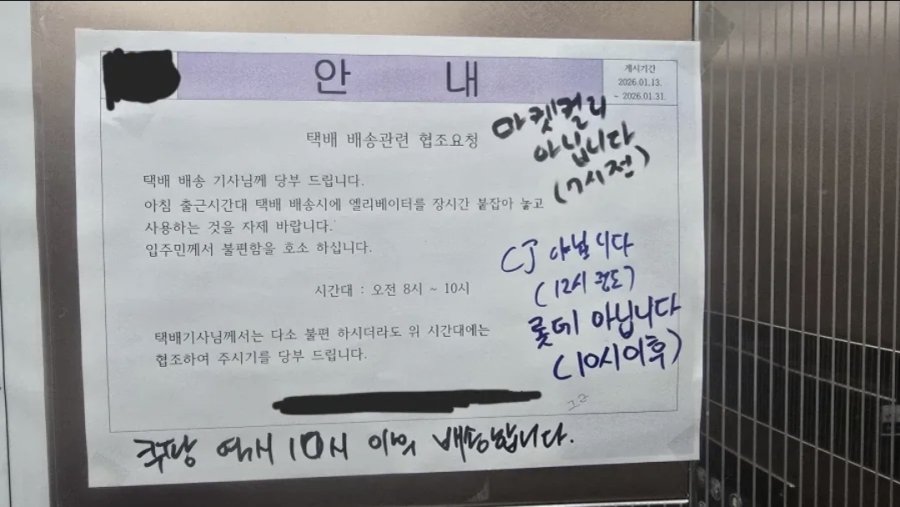 안 내
게시기간
2026.01.13.
~ 2026.01.31.
택배 배송관련 협조요청
마켓컬리
아닙니다
(7시전)
택배 배송 기사님께 당부 드립니다.
아침 출근시간대 택배 배송시에 엘리베이터를 장시간 붙잡아 놓고
사용하는 것을 자제 바랍니다.
입주민께서 불편함을 호소 하십니다.
시간대 : 오전 8시 ~ 10시
CJ 아닙니다
(12시 정도)
롯데 아닙니다
(10시이후)
택배기사님께서는 다소 불편 하시더라도 위 시간대에는
협조하여 주시기를 당부 드립니다.
쿠팡 역시 10시 이후 배송합니다.